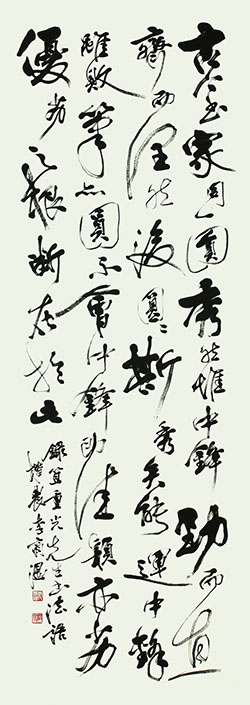 古今書家同一圓秀然惟中鋒勁而直
齊而潤然後圓圓斯秀矣能運中鋒
雖敗筆亦圓不會中鋒即佳穎亦劣
優劣之根斷在於此
錄笪重光先生書法語
農李宗